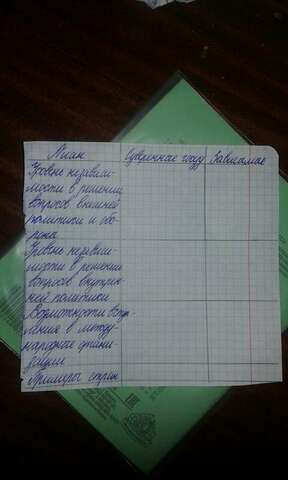 План Суверенное госу Зависимое
Уровень независи-
мости в решении
вопросов внешней
политики и обо-
роны
Уровень независи-
мости в решении
вопросов внутрен-
ней политики
Возможность вступ
ления в между-
народные органи-
зации
Примеры стран